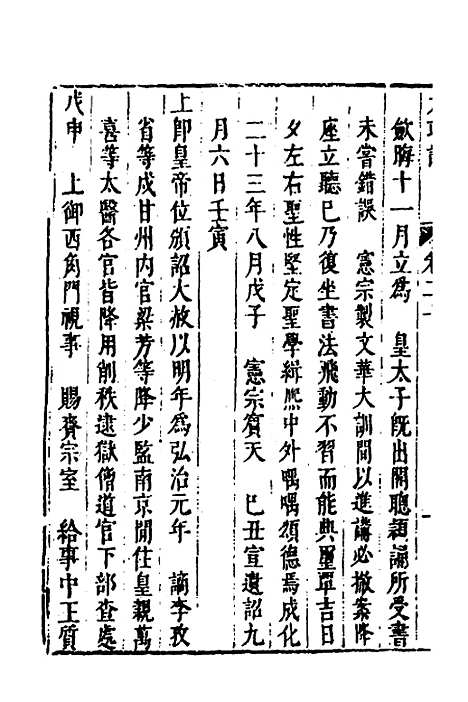 歛晦十一月立為 皇太子既出閣聰頴誦所受書
未嘗錯誤 憲宗製文華大訓間以進講必撤案降
座立聽已乃復坐書法飛動不習而能典璽覃吉日
夕左右聖性堅定聖學緝熈中外喁喁頌德焉成化
二十三年八月戊子 憲宗賓天 巳丑宣遺詔九
月六日壬寅
上即皇帝位頒詔大赦以明年為弘治元年 謫李孜
省等戍甘州内官梁芳等降少監南京閒住皇親萬
喜等太醫各官皆降用削秩逮獄僧道官下部查處
戊申 上御西角門視事 賜賚宗室 給事中王質